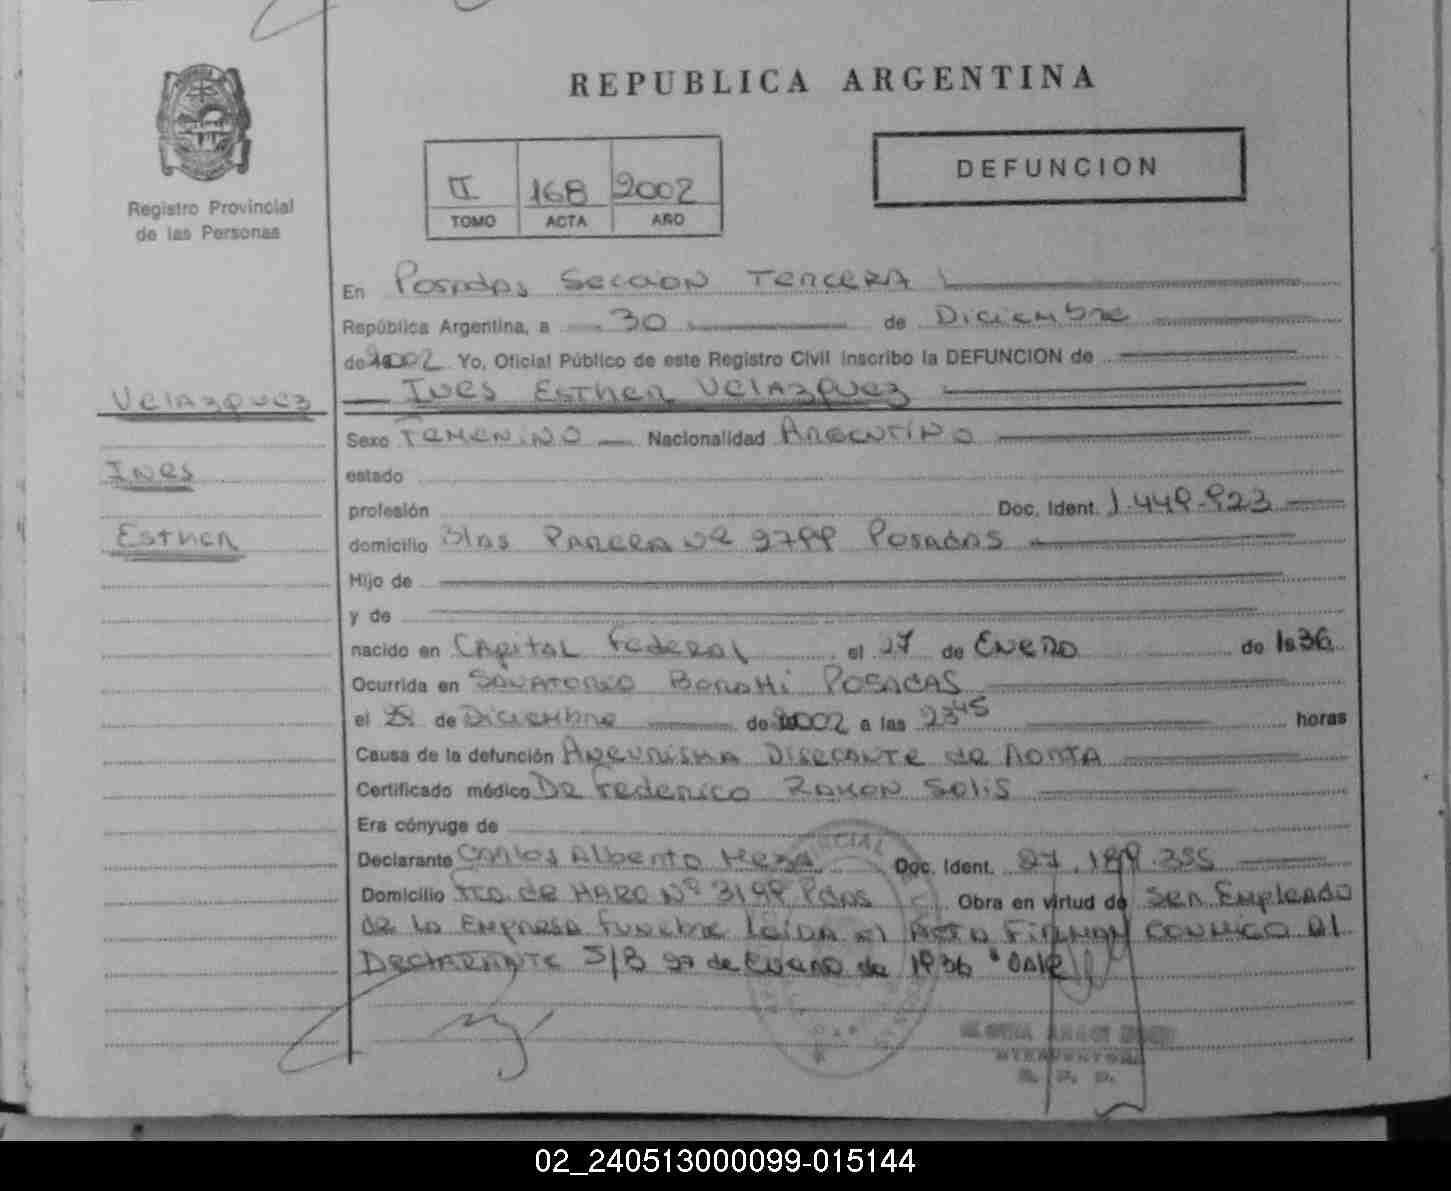 REPUBLICA ARGENTINA
DEFUNCION
II 168 2002
TOMO ACTA AÑO
Registro Provincial
de las Personas
En Posadas Seccion Tercera
República Argentina, a 30 de Diciembre
de 2002 Yo, Oficial Público de este Registro Civil inscribo la DEFUNCION de
Ines Esther Velazquez
Velazquez
Ines
Esther
Sexo Femenino Nacionalidad Argentino
estado
profesión Doc. Ident. 1.449.923
domicilio Blas Parera Nº 2799 Posadas
Hijo de
y de
nacido en Capital Federal el 27 de Enero de 1936
Ocurrida en Sanatorio Boratti Posadas
el de Diciembre de 2002 a las 23 45 horas
Causa de la defunción Aneurisma Disecante de Aorta
Certificado médico Dr Federico Ramon Solis
Era cónyuge de
Declarante Carlos Alberto Meza Doc. Ident. 27.199.355
Domicilio Fco. de Haro Nº 3199 Pdas Obra en virtud de Ser Empleado
de la Empresa Funebre Leida el Acta Firman conmigo el
Declarante S/B 27 de Enero de 1936 "Vale"
02_240513000099-015144